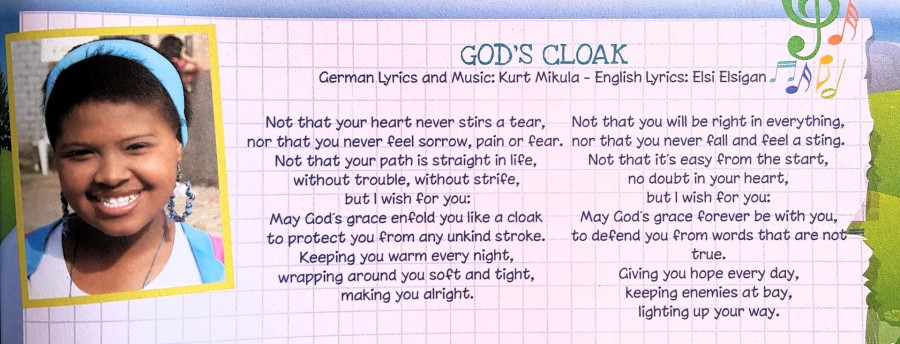 GOD'S CLOAK
German Lyrics and Music: Kurt Mikula - English Lyrics: Elsi Elsigan
Not that your heart never stirs a tear,
nor that you never feel sorrow, pain or fear.
Not that your path is straight in life,
without trouble, without strife,
but I wish for you:
May God's grace enfold you like a cloak
to protect you from any unkind stroke.
Keeping you warm every night,
wrapping around you soft and tight,
making you alright.
Not that you will be right in everything,
nor that you never fall and feel a sting.
Not that it's easy from the start,
no doubt in your heart,
but I wish for you:
May God's grace forever be with you,
to defend you from words that are not
true.
Giving you hope every day,
keeping enemies at bay,
lighting up your way.